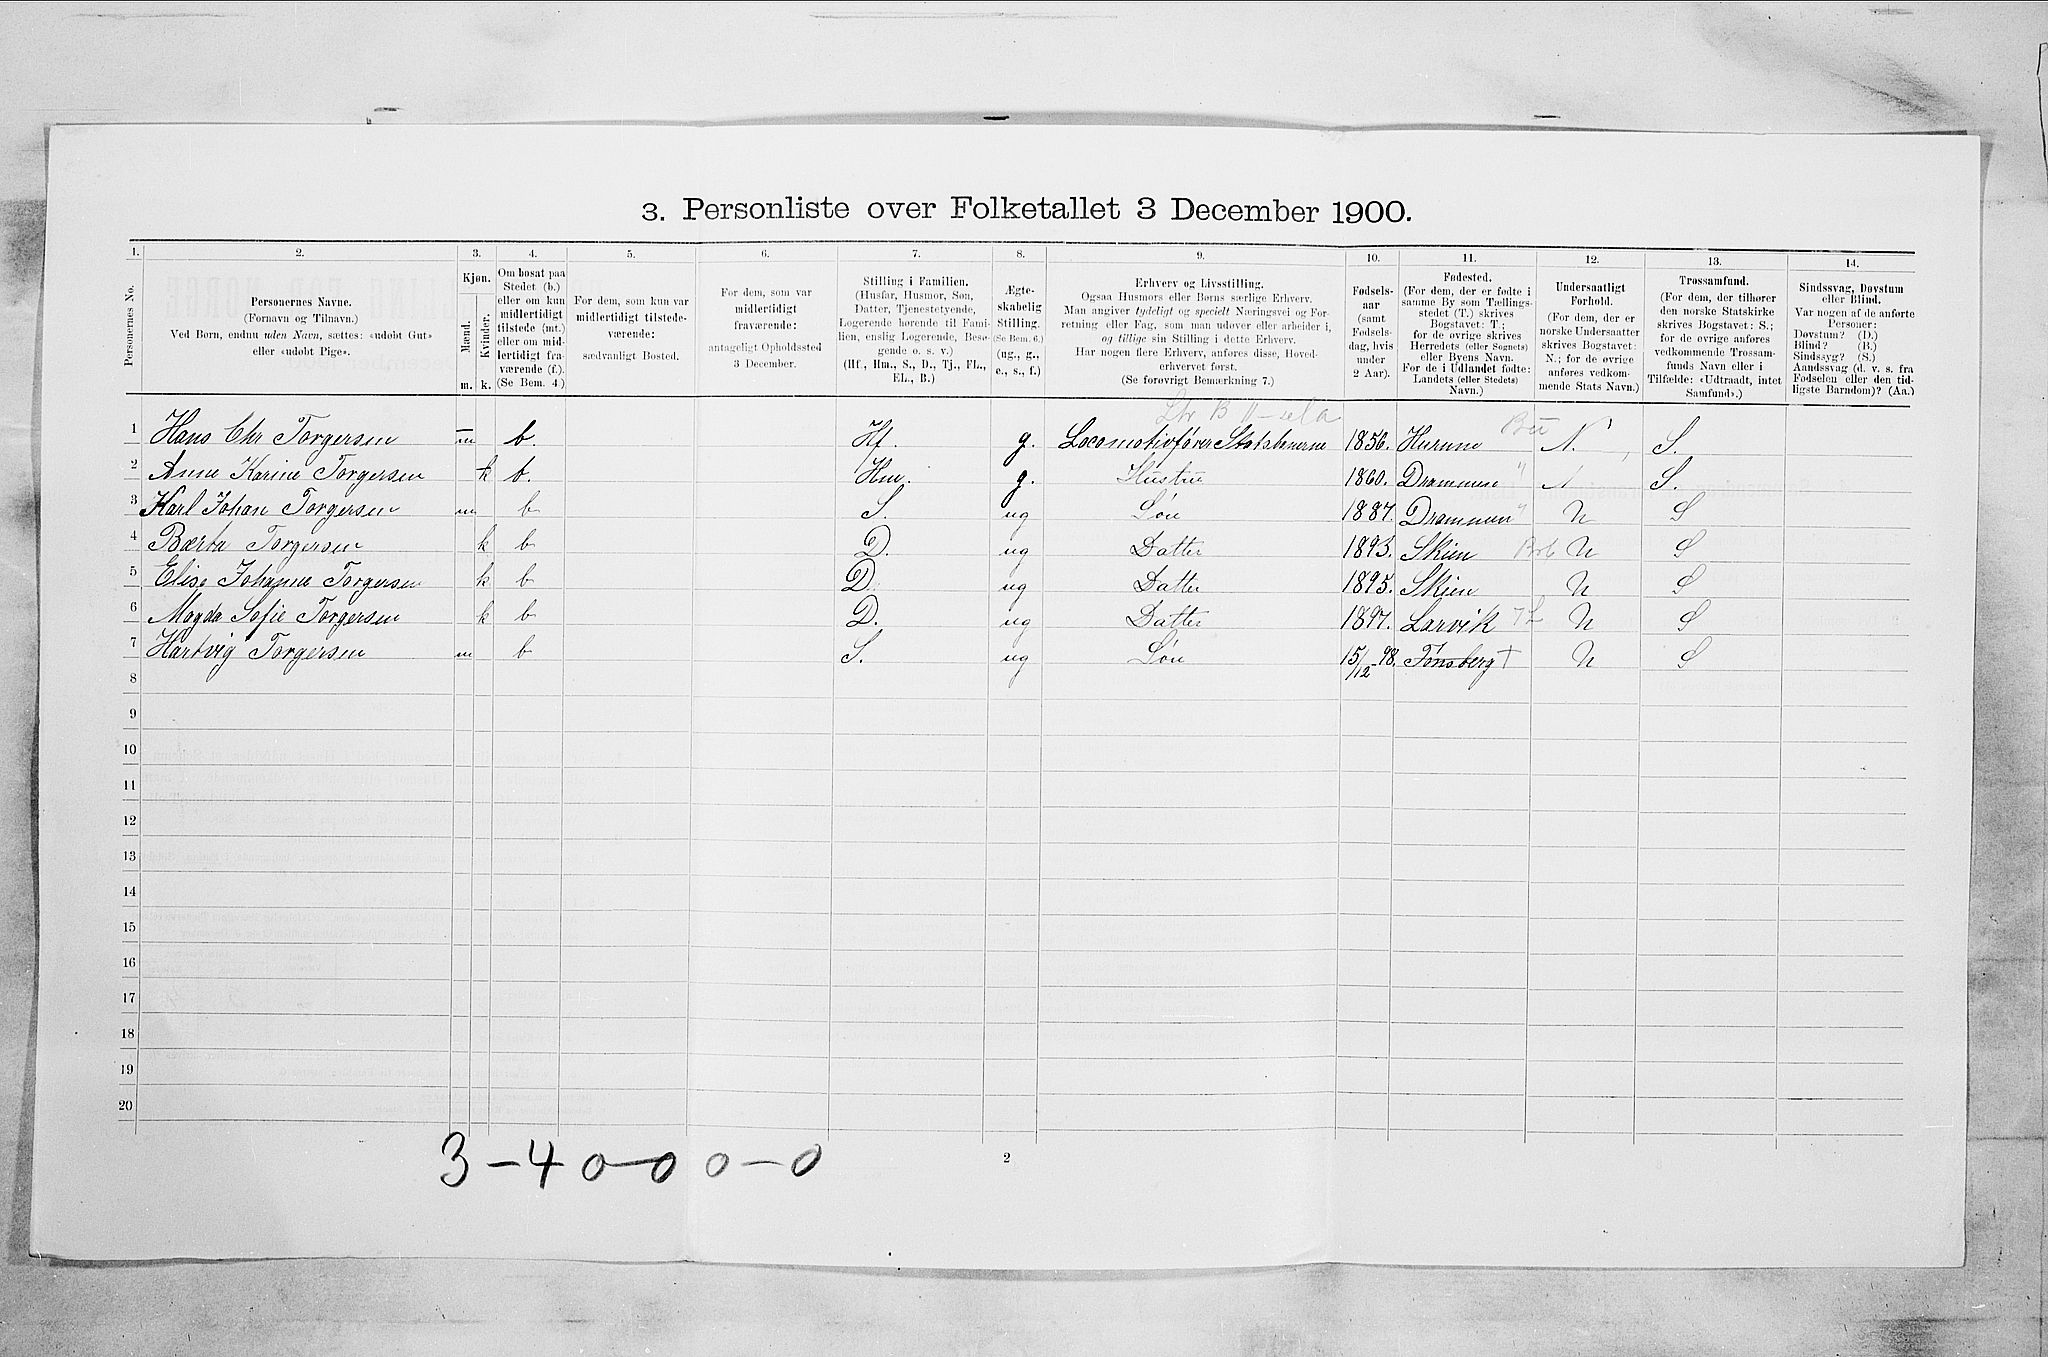 3. Personliste over Folketallet 3 December 1900.
1. 2. 3. 4. 5. 6. 7. 8. 9. 10. 11. 12. 13. 14.
Personernes No.
Personernes Navne.
(Fornavn og Tilnavn.)
Ved Børn, endnu uden Navn, sættes: «udøbt Gut»
eller «udøbt Pige».
Kjøn.
Mænd.
Kvinder.
m. k.
Om bosat paa
Stedet (b.)
eller om kun
midlertidigt
tilstede (mt.)
eller om mid-
lertidigt fra-
værende (f.).
(Se Bem. 4.)
For dem, som kun var
midlertidigt tilstede-
værende:
sædvanligt Bosted.
For dem, som var
midlertidigt
fraværende:
antageligt Opholdssted
3 December.
Stilling i Familien.
(Husfar, Husmor, Søn,
Datter, Tjenestetyende,
Logerende hørende til Fami-
lien, enslig Logerende, Besø-
gende o. s. v.)
(Hf., Hm., S., D., Tj., FL.,
EL., B.)
Ægte-
skabelig
Stilling.
(Se Bem. 6.)
(ug., g.,
e., s., f.)
Erhverv og Livsstilling.
Ogsaa Husmors eller Børns særlige Erhverv.
Man angiver tydeligt og specielt Næringsvei og For-
retning eller Fag, som man udøver eller arbeider i,
og tillige sin Stilling i dette Erhverv.
Har nogen flere Erhverv, anføres disse, Hoved-
erhvervet først.
(Se forøvrigt Bemærkning 7.)
Fødsels-
aar
(samt
Fødsels-
dag, hvis
under
2 Aar).
Fødested.
(For dem, der er fødte i
samme By som Tællings-
stedet (T.) skrives
Bogstavet: T.;
for de øvrige skrives
Herredets (eller Sognets)
eller Byens Navn.
For de i Udlandet fødte:
Landets (eller Stedets)
Navn.)
Undersaatligt
Forhold.
(For dem, der er
norske Undersaatter
skrives Bogstavet:
N.; for de øvrige
anføres vedkom-
mende Stats Navn.)
Trossamfund.
(For dem, der tilhører
den norske Statskirke
skrives Bogstavet: S.;
for de øvrige anføres
vedkommende Trossam-
funds Navn eller i
Tilfælde: «Udtraadt, intet
Samfund».)
Sindssvag, Døvstum
eller Blind.
Var nogen af de anførte
Personer:
Døvstum? (D.)
Blind? (B.)
Sindssyg? (S.)
Aandssvag (d. v. s. fra
Fødselen eller den tid-
ligste Barndom)? (Aa.)
1 Hans Chr Torgersen m b. Hf. g. Locomotivfører Statsbanerne 1856. Hurum N. S.
2 Anne Karine Torgersen k b. Hm. g. Hustru 1860. Drammen " N S.
3 Karl Johan Torgersen m b S. ug Søn 1887. Drammen " N S
4 Bærta Torgersen k b D. ug Datter 1893. Skien N S
5 Elise Johanne Torgersen k b D. ug Datter 1895. Skien N S
6 Magda Sofie Torgersen k b D. ug Datter 1897. Larvik N S
7 Hartvig Torgersen m b S. ug Søn 15/12-98. Tønsberg T N S
8
9
10
11
12
13
14
15
16
17
18
19
20
3-4 0-0 0-0
2